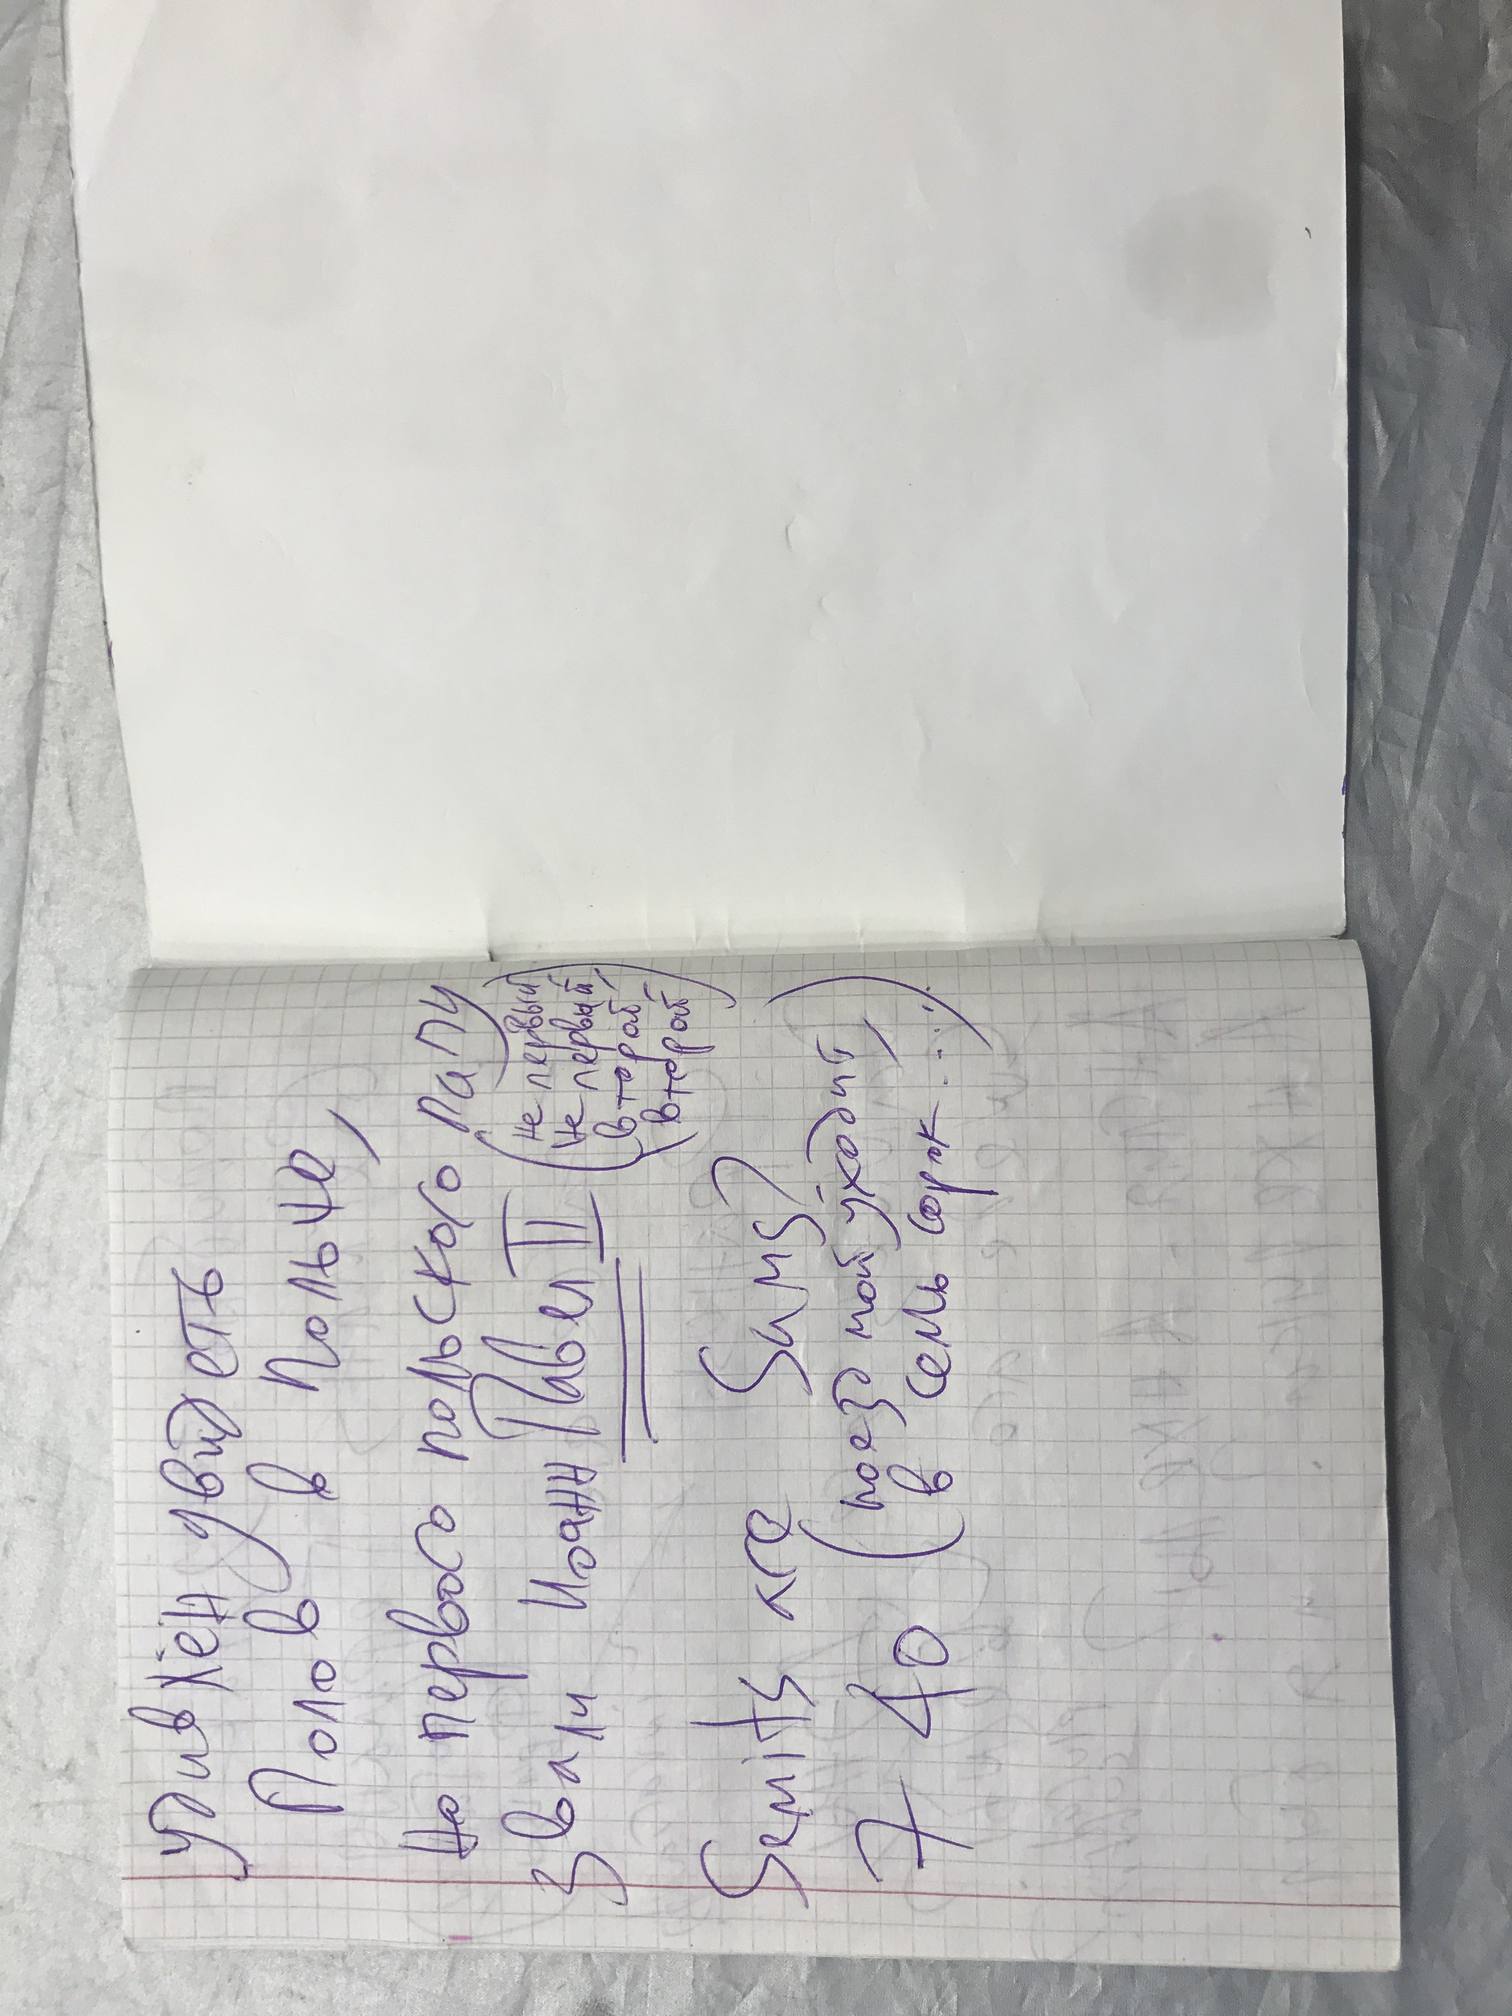 удивлён увидеть
Полов в Польше,
но первого польского папу
звали Иоанн Павел II
(не первый
не первый,
второй
второй)
Semits are Sums?
7 40 (поезд мой уходит,
в семь сорок....)